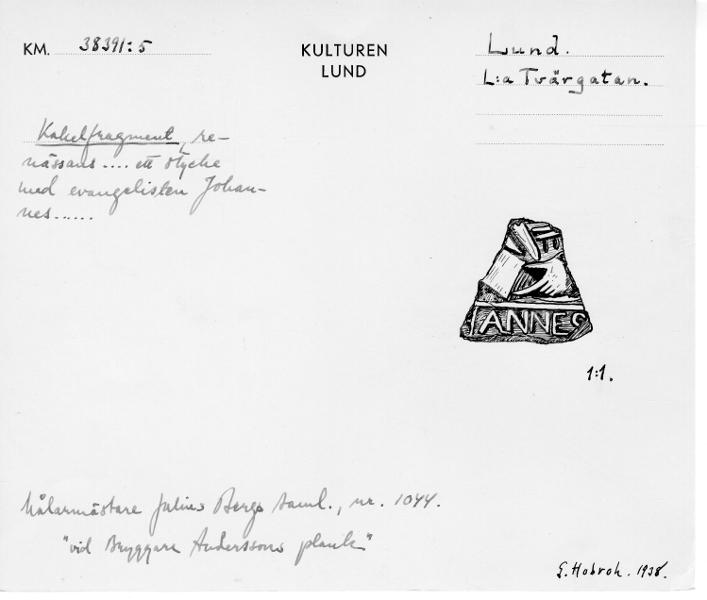 KM. 38391:5
KULTUREN
LUND
Lund.
L:a Tvärgatan.
Kakelfragment, re-
nässans .... ett stycke
med evangelisten Johan-
nes......
HANNES
1:1.
Målarmästare Julius Bergs saml., nr. 1044.
"vid Bryggare Anderssons plank"
1938.